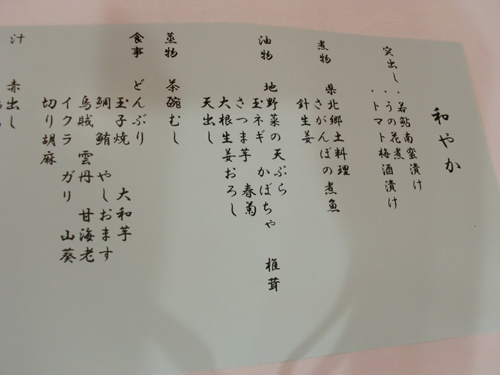 和やか
突出し ・若鮎南蛮漬け
・うの花煮
・トマト梅酒漬け
煮物 県北郷土料理
さがんぼの煮魚
針生姜
油物 地野菜の天ぷら
玉ネギ かぼちゃ 椎茸
さつま芋 春菊
大根生姜おろし
天出し
蒸物 茶碗むし
食事 どんぶり
玉子焼 大和芋
鯛 鮪 やしおます
烏賊 雲丹 甘海老
イクラ ガリ 山葵
切り胡麻
汁 赤出し